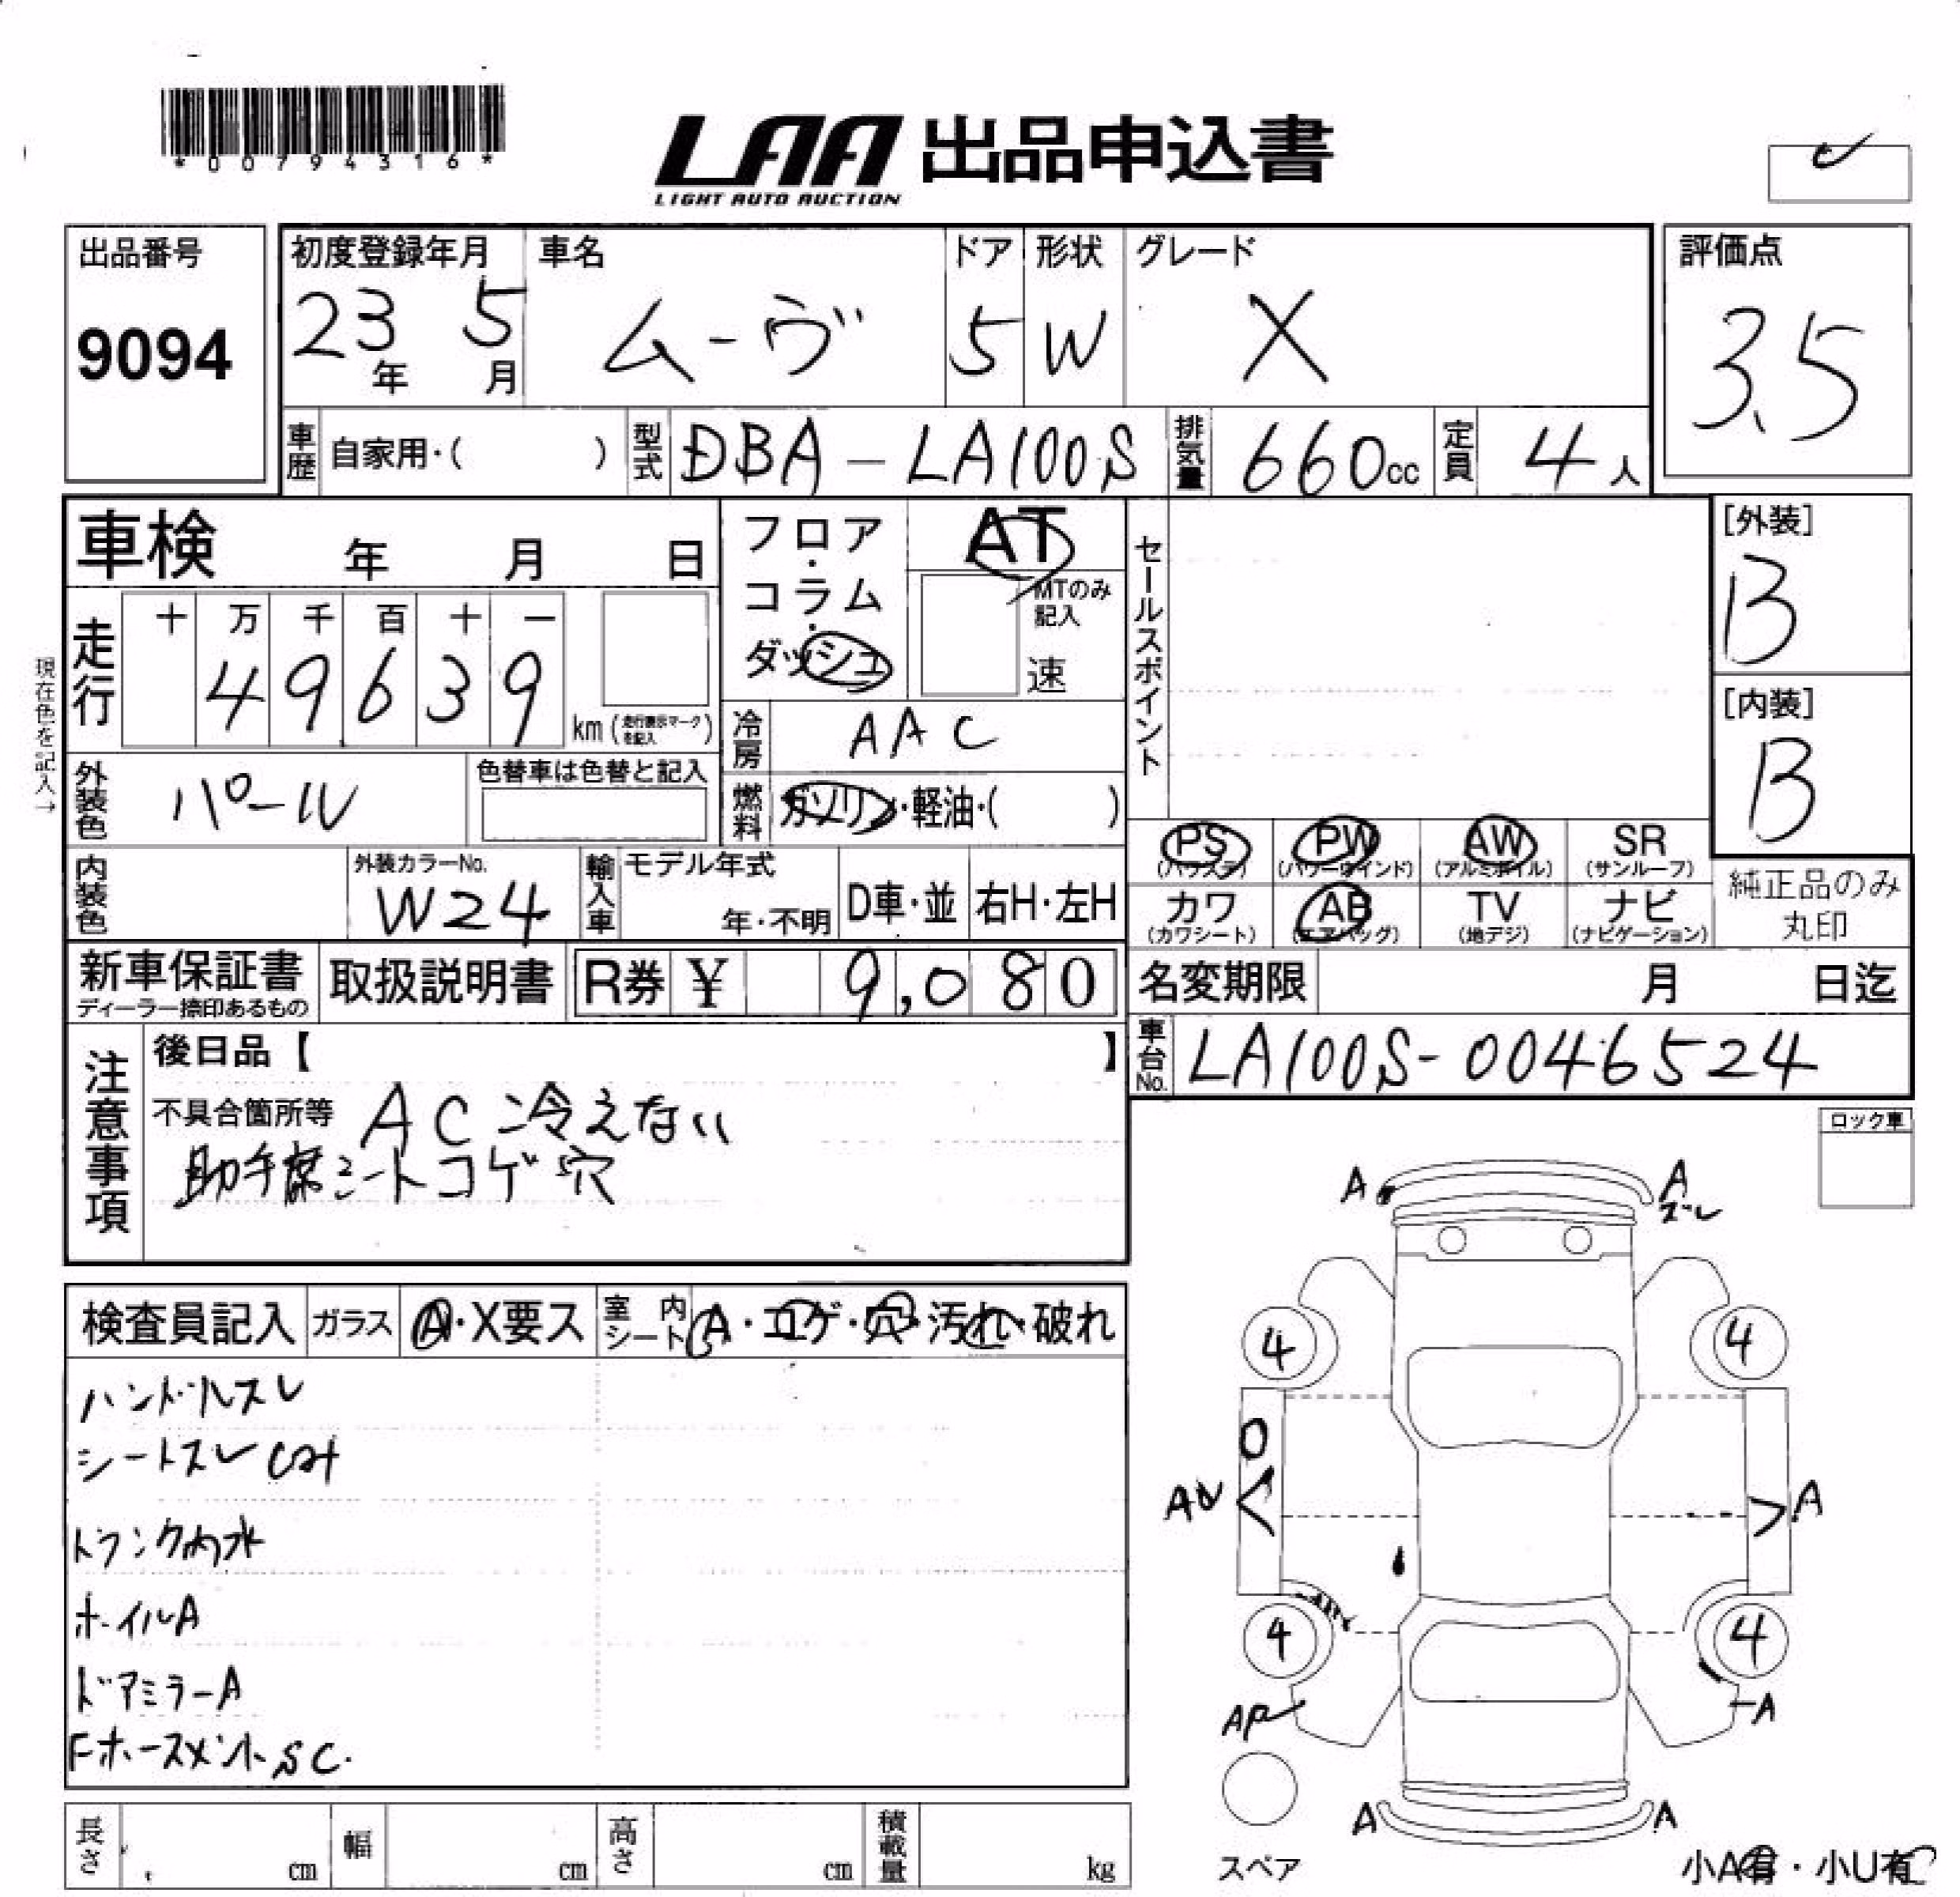 *00794316*
LAA 出品申込書
LIGHT AUTO AUCTION
出品番号
9094
初度登録年月
23年 5月
車名
ムーヴ
ドア
5
形状
W
グレード
X
評価点
3.5
車歴 自家用・( )
型式 DBA-LA100S
排気量 660cc
定員 4人
車検 年 月 日
走行
十 万 千 百 十 一
4 9 6 3 9
km (走行表示マークを記入)
現在色を記入→
フロア・コラム・ダッシュ
AT
MTのみ記入
速
冷房 AAC
燃料 ガソリン・軽油・( )
セールスポイント
[外装]
B
[内装]
B
外装色 パール
色替車は色替と記入
内装色
外装カラーNo.
W24
輸入車
モデル年式
年・不明
D車・並
右H・左H
PS (パワステ)
PW (パワーウインド)
AW (アルミホイル)
SR (サンルーフ)
カワ (カワシート)
AB (エアバッグ)
TV (地デジ)
ナビ (ナビゲーション)
純正品のみ丸印
新車保証書
ディーラー捺印あるもの
取扱説明書
R券 ¥ 9,080
名変期限 月 日迄
車台No. LA100S-0046524
注意事項
後日品【 】
不具合箇所等 AC 冷えない
助手席シートコゲ穴
ロック車
検査員記入
ガラス A・X要ス
室内シート A・コゲ・穴・汚れ・破れ
ハンドルスレ
シートスレ
トランク内水
ホイルA
ドアミラーA
Fホースメント SC.
A
A
ズレ
4
4
A
4
4
AP
A
A
A
スペア
小A有・小U有
長さ cm
幅 cm
高さ cm
積載量 kg